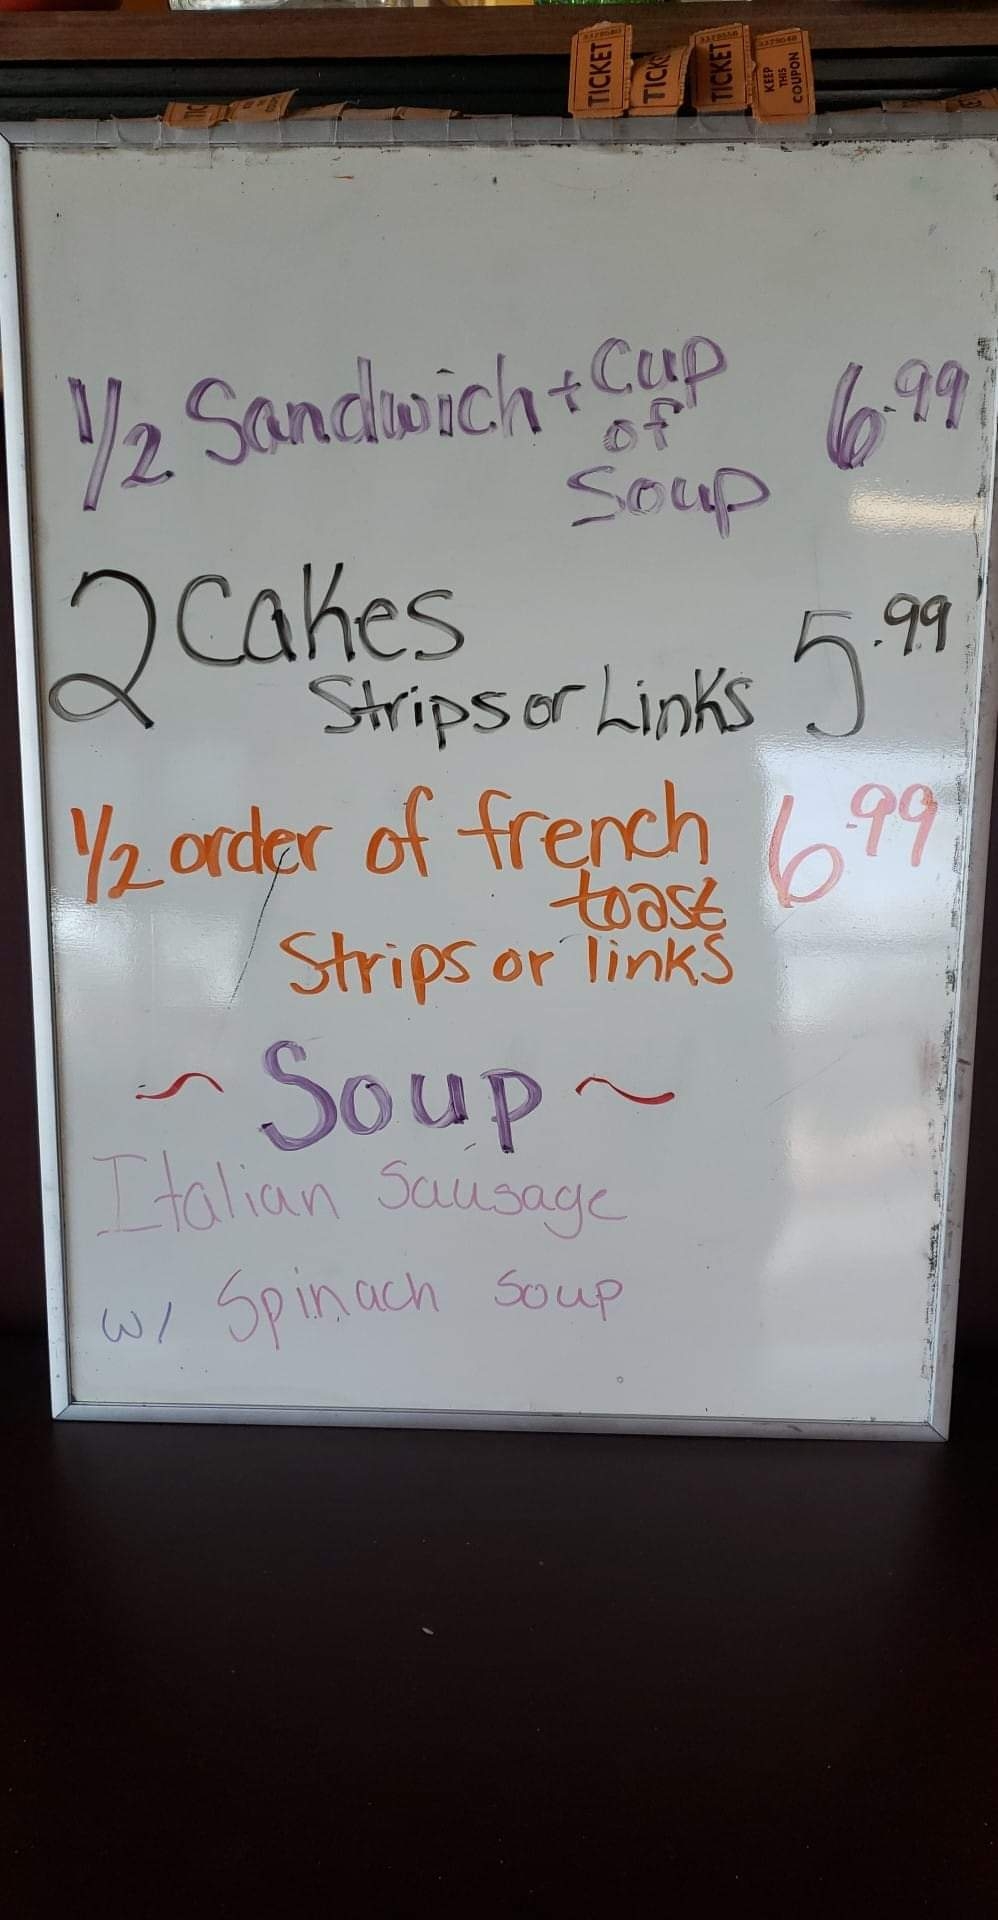 TICKET
TICK
TICKET
KEEP THIS COUPON
1/2 Sandwich + Cup of Soup 6.99
2 Cakes 5.99
Strips or Links
1/2 order of french toast 6.99
Strips or links
~ Soup ~
Italian Sausage
w/ Spinach Soup